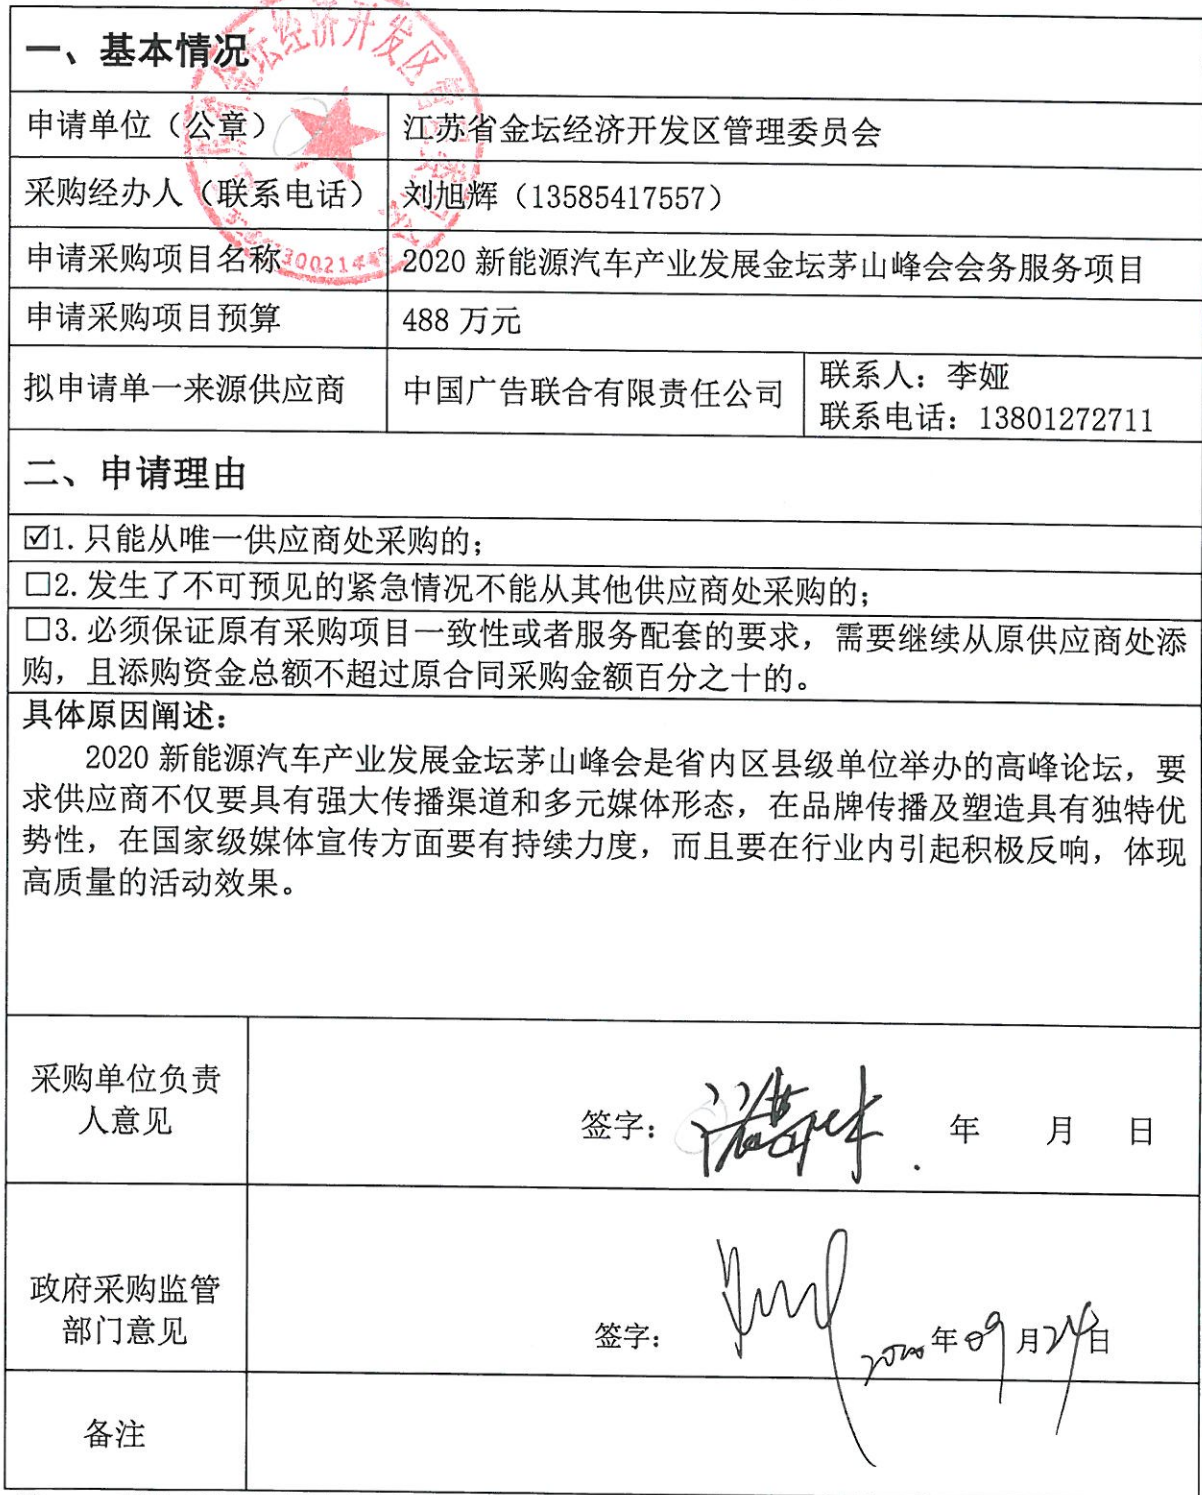 一、基本情况
申请单位（公章）
江苏省金坛经济开发区管理委员会
采购经办人（联系电话）
刘旭辉（13585417557）
申请采购项目名称
2020 新能源汽车产业发展金坛茅山峰会会务服务项目
申请采购项目预算
488 万元
拟申请单一来源供应商
中国广告联合有限责任公司
联系人：李娅
联系电话：13801272711
二、申请理由
☑1.只能从唯一供应商处采购的；
□2.发生了不可预见的紧急情况不能从其他供应商处采购的；
□3.必须保证原有采购项目一致性或者服务配套的要求，需要继续从原供应商处添
购，且添购资金总额不超过原合同采购金额百分之十的。
具体原因阐述：
2020 新能源汽车产业发展金坛茅山峰会是省内区县级单位举办的高峰论坛，要
求供应商不仅要具有强大传播渠道和多元媒体形态，在品牌传播及塑造具有独特优
势性，在国家级媒体宣传方面要有持续力度，而且要在行业内引起积极反响，体现
高质量的活动效果。
采购单位负责
人意见
签字：
年 月 日
政府采购监管
部门意见
签字：
2020年09月24日
备注